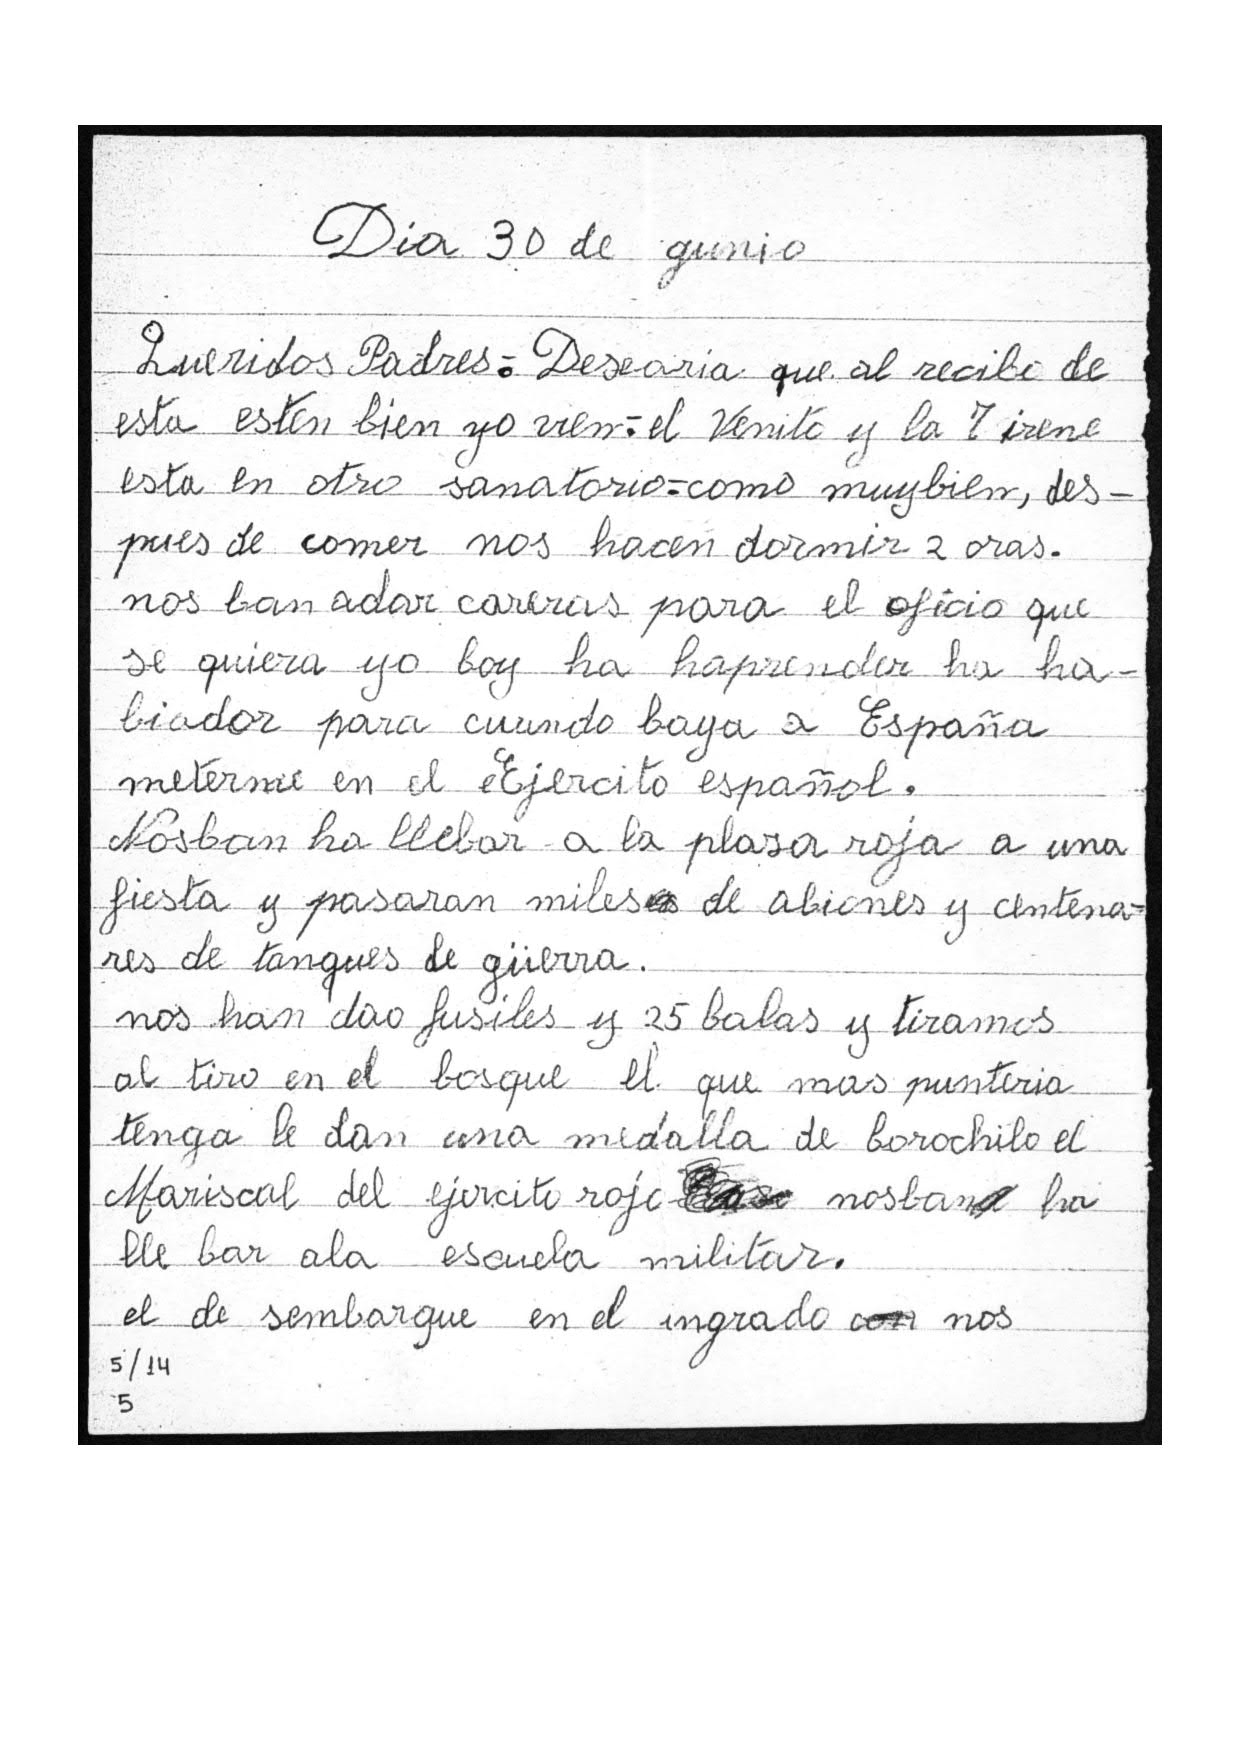 Dia 30 de gunio
Queridos Padres = Desearia que al recibo de
esta esten bien yo vien = el Venito y la irene
esta en otro sanatorio = como muybien, des-
pues de comer nos hacen dormir 2 oras.
nos ban adar careras para el oficio que
se quiera yo boy ha haprender ha ha-
biador para cuando baya a España
meterme en el Ejercito español.
Nosban ha llebar a la plasa roja a una
fiesta y pasaran miles de abiones y centena-
res de tanques de güerra.
nos han dao fusiles y 25 balas y tiramos
al tiro en el bosque el que mas punteria
tenga le dan una medalla de borochilo el
Mariscal del ejercito rojo nosban ha
lle bar ala escuela militar.
el de sembarque en el ingrado con nos
5/14
5